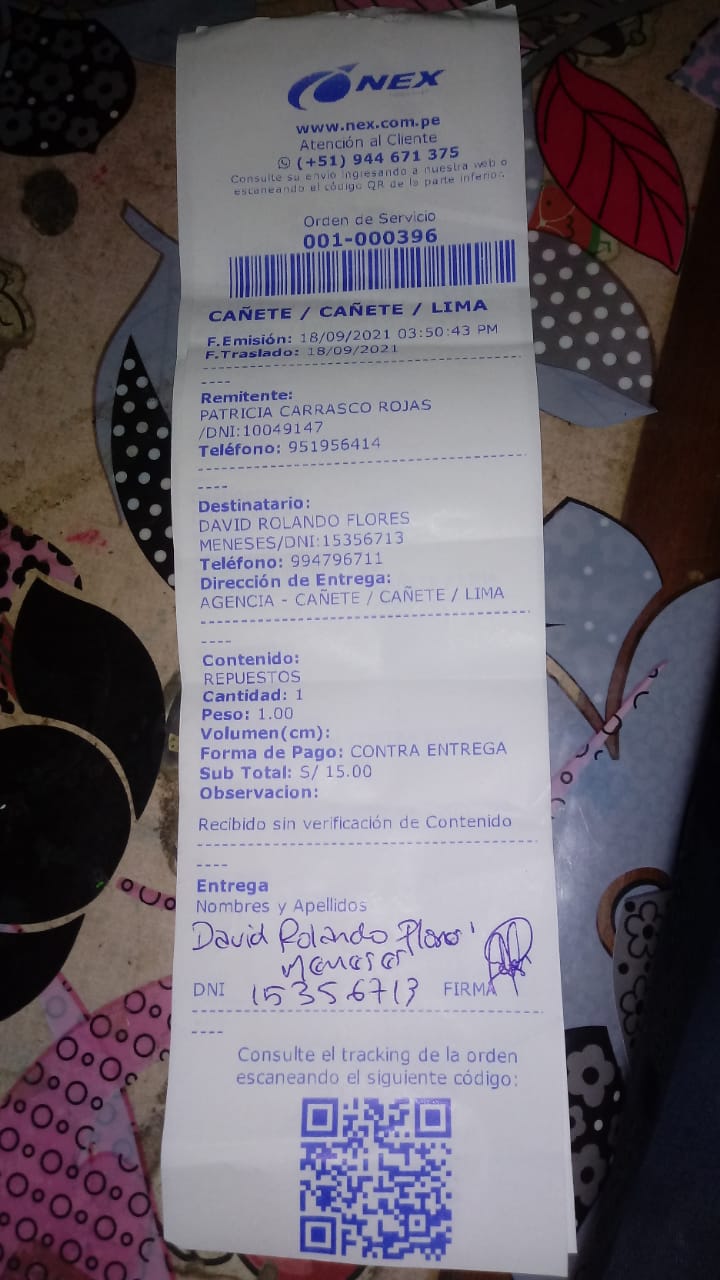 NEX
www.nex.com.pe
Atención al Cliente
(+51) 944 671 375
Consulte su envio ingresando a nuestra web o
escaneando el código QR de la parte inferior.
Orden de Servicio
001-000396
CAÑETE / CAÑETE / LIMA
F.Emisión: 18/09/2021 03:50:43 PM
F.Traslado: 18/09/2021
----
Remitente:
PATRICIA CARRASCO ROJAS
/DNI:10049147
Teléfono: 951956414
----
Destinatario:
DAVID ROLANDO FLORES
MENESES/DNI:15356713
Teléfono: 994796711
Dirección de Entrega:
AGENCIA - CAÑETE / CAÑETE / LIMA
----
Contenido:
REPUESTOS
Cantidad: 1
Peso: 1.00
Volumen(cm):
Forma de Pago: CONTRA ENTREGA
Sub Total: S/ 15.00
Observacion:
Recibido sin verificación de Contenido
----
Entrega
Nombres y Apellidos
David Rolando Flores
Meneses
DNI 15356713 FIRMA
----
Consulte el tracking de la orden
escaneando el siguiente código: